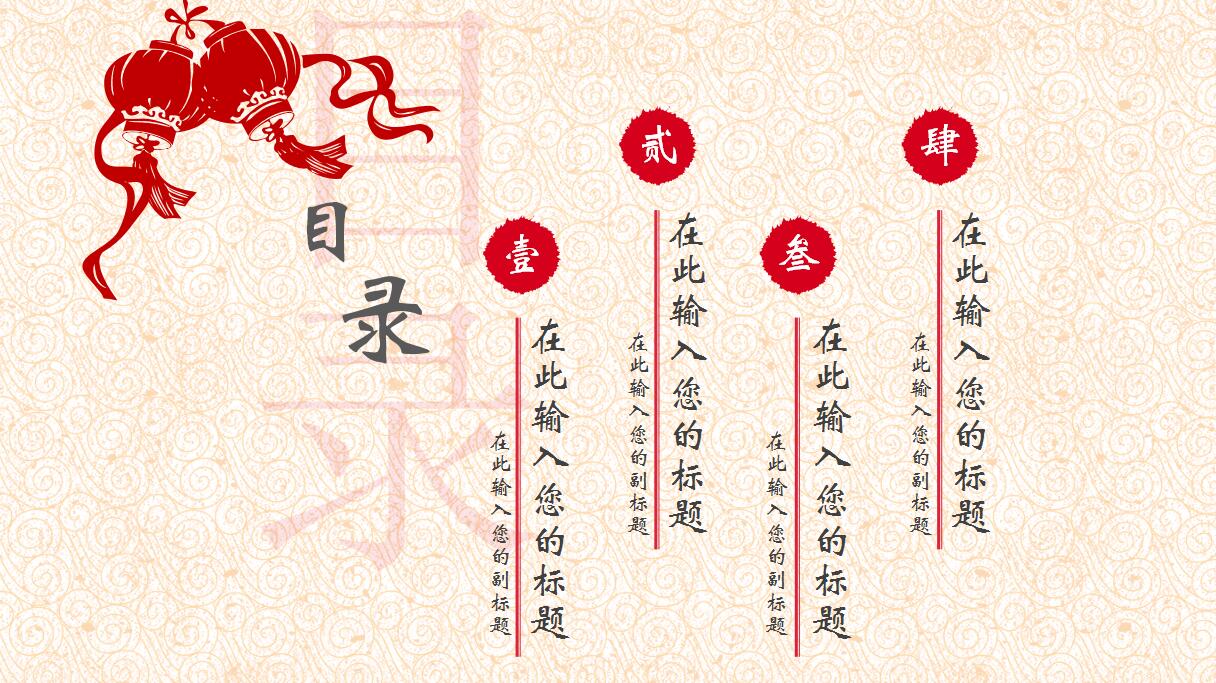 目录
目录
壹
在此输入您的标题
在此输入您的副标题
贰
在此输入您的标题
在此输入您的副标题
叁
在此输入您的标题
在此输入您的副标题
肆
在此输入您的标题
在此输入您的副标题